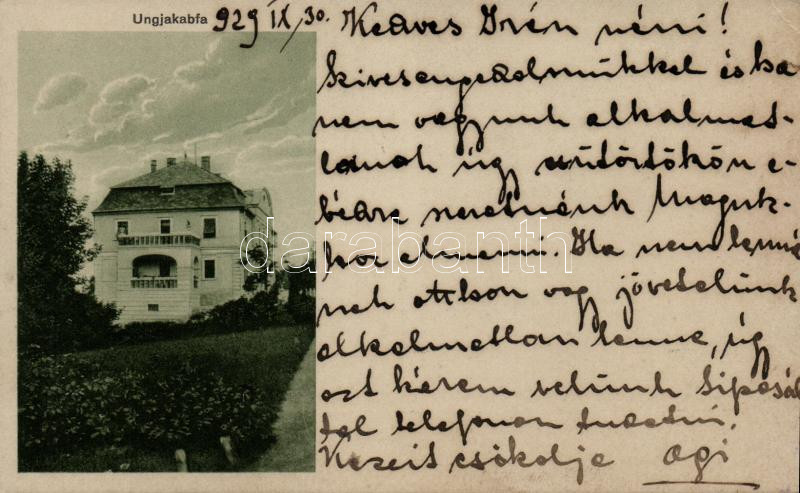 Ungjakabfa
929 IX/30. Kedves Irén néni!
Szívesengedelmükkel és ha
nem vagyunk alkalmat-
lanok úgy csütörtökön e-
bédre szeretnénk Maguk-
hoz elmenni. Ha nem lenné-
nek otthon vagy jövetelünk
alkalmatlan lenne, úgy
azt kérem velünk
telefonon tudatni.
Kezeit csókolja Ági
darabanth